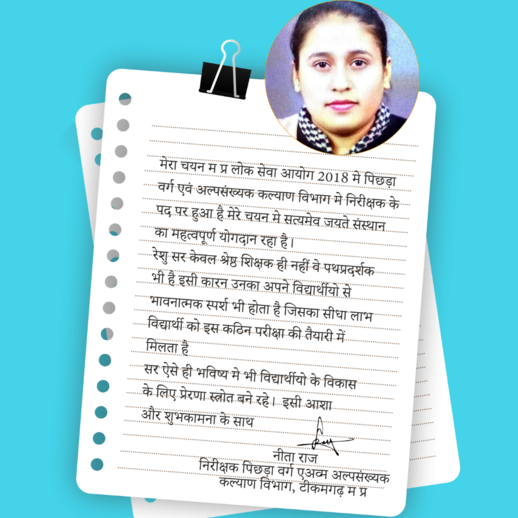 मेरा चयन म प्र लोक सेवा आयोग 2018 मे पिछड़ा
वर्ग एवं अल्पसंख्यक कल्याण विभाग मे निरीक्षक के
पद पर हुआ है मेरे चयन मे सत्यमेव जयते संस्थान
का महत्वपूर्ण योगदान रहा है।
रेशु सर केवल श्रेष्ठ शिक्षक ही नहीं वे पथप्रदर्शक
भी है इसी कारन उनका अपने विद्यार्थीयो से
भावनात्मक स्पर्श भी होता है जिसका सीधा लाभ
विद्यार्थी को इस कठिन परीक्षा की तैयारी में
मिलता है
सर ऐसे ही भविष्य मे भी विद्यार्थीयो के विकास
के लिए प्रेरणा स्त्रोत बने रहे। इसी आशा
और शुभकामना के साथ
नीता राज
निरीक्षक पिछड़ा वर्ग एअव्म अल्पसंख्यक
कल्याण विभाग, टीकमगढ़ म प्र